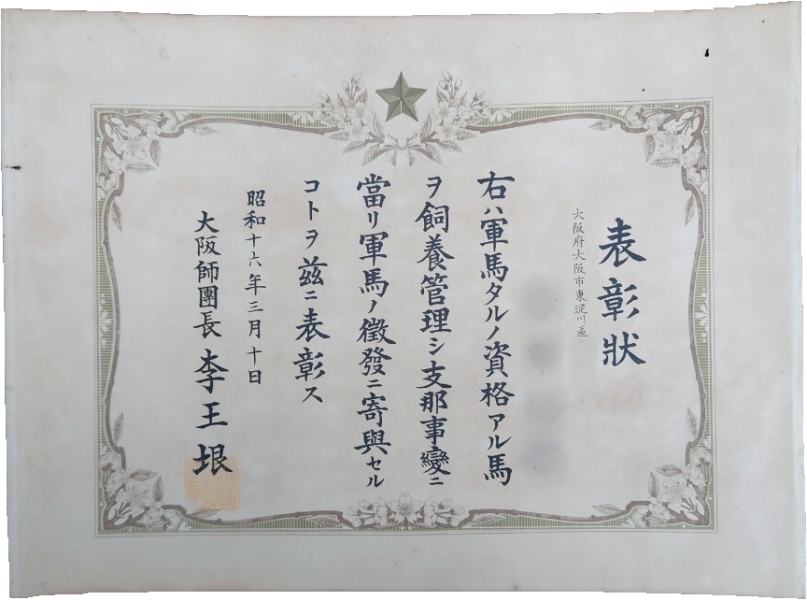 表彰狀
大阪府大阪市東淀川區
右ハ軍馬タルノ資格アル馬
ヲ飼養管理シ支那事變ニ
當リ軍馬ノ徵發ニ寄與セル
コトヲ茲ニ表彰ス
昭和十六年三月十日
大阪師團長 李王垠